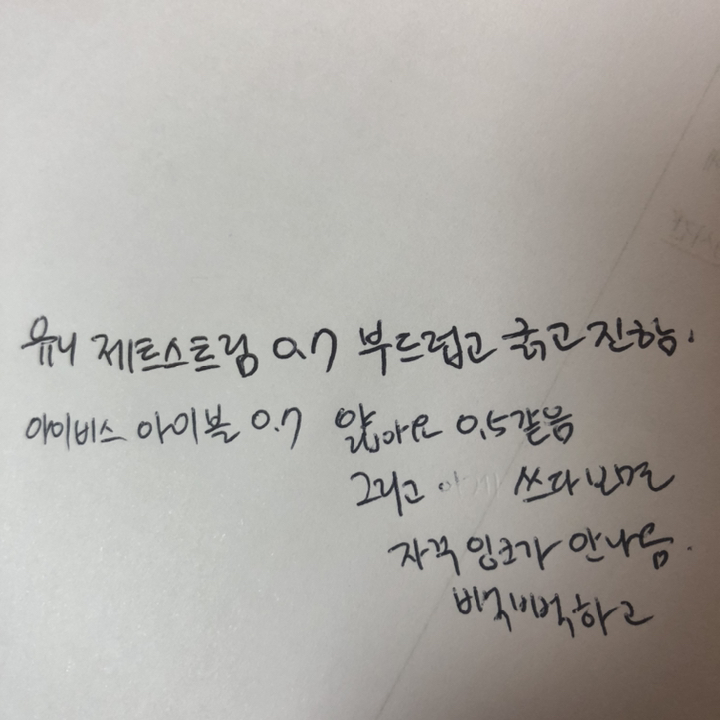 유니 제트스트림 0.7 부드럽고 굵고 진함.
아이비스 아이볼 0.7 얇아요 0.5같음
그리고 쓰다보면
자꾸 잉크가 안나옴.
비벅하고